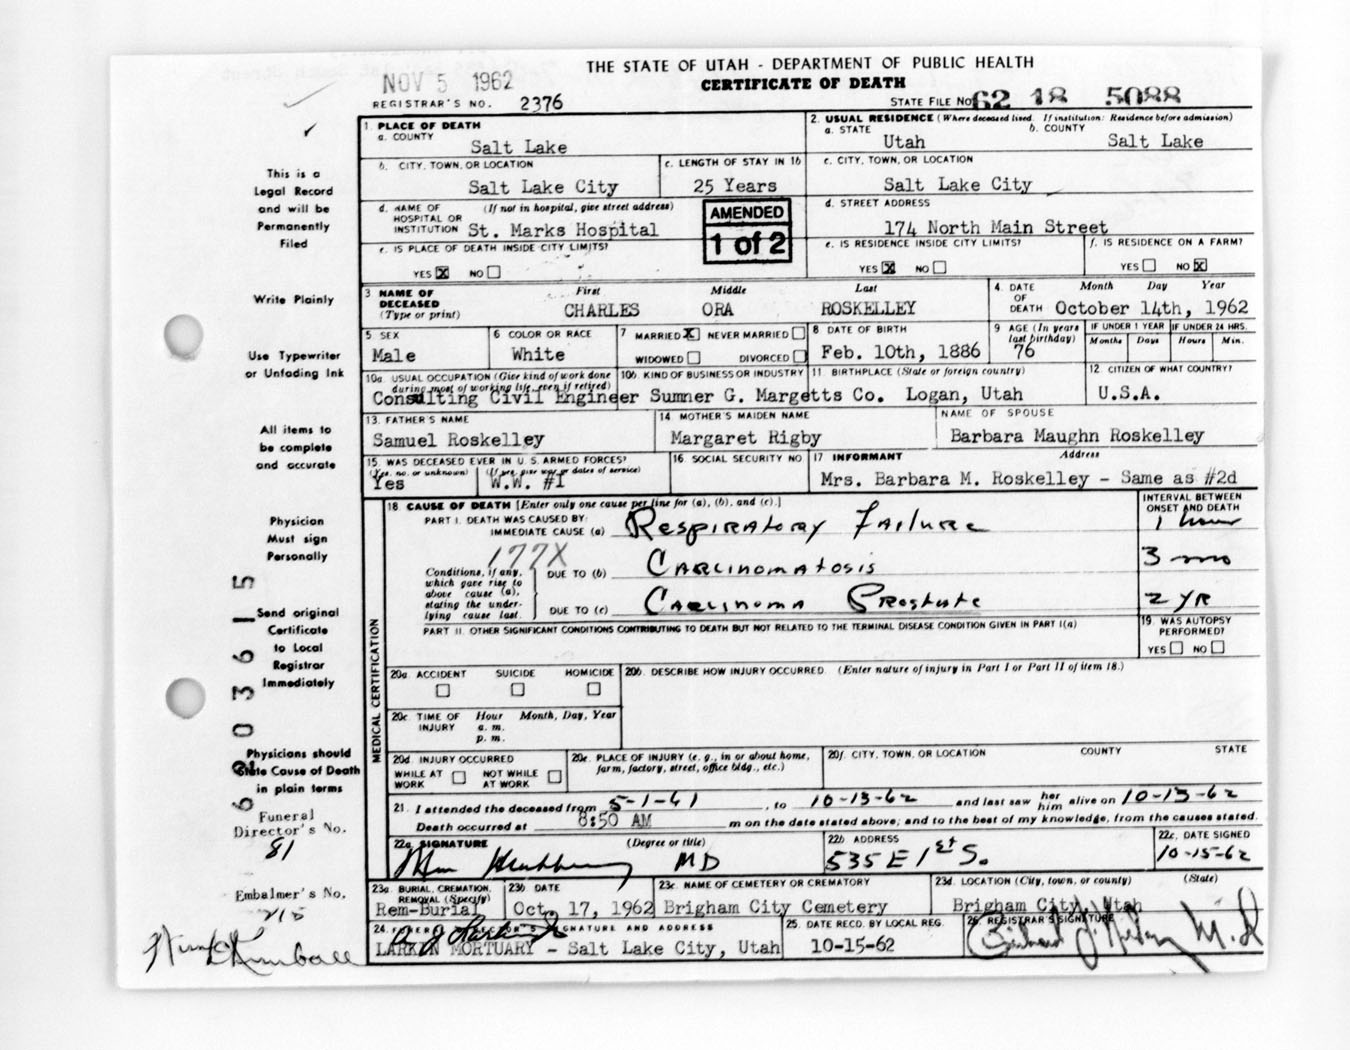 THE STATE OF UTAH - DEPARTMENT OF PUBLIC HEALTH
CERTIFICATE OF DEATH
NOV 5 1962
REGISTRAR'S NO. 2376
STATE FILE NO. 62 18 5088
This is a
Legal Record
and will be
Permanently
Filed
Write Plainly
Use Typewriter
or Unfading Ink
All items to
be complete
and accurate
Physician
Must sign
Personally
Send original
Certificate
to Local
Registrar
Immediately
Physicians should
State Cause of Death
in plain terms
Funeral
Director's No.
81
Embalmer's No.
215
Kimball
1. PLACE OF DEATH
a. COUNTY
Salt Lake
2. USUAL RESIDENCE (Where deceased lived. If institution: Residence before admission)
a. STATE b. COUNTY
Utah Salt Lake
b. CITY, TOWN, OR LOCATION
Salt Lake City
c. LENGTH OF STAY IN 1b
25 Years
c. CITY, TOWN, OR LOCATION
Salt Lake City
d. NAME OF (If not in hospital, give street address)
HOSPITAL OR
INSTITUTION St. Marks Hospital
AMENDED
1 of 2
d. STREET ADDRESS
174 North Main Street
e. IS PLACE OF DEATH INSIDE CITY LIMITS?
YES X NO
e. IS RESIDENCE INSIDE CITY LIMITS?
YES X NO
f. IS RESIDENCE ON A FARM?
YES NO X
3 NAME OF DECEASED (Type or print)
First Middle Last
CHARLES ORA ROSKELLEY
4. DATE OF DEATH
Month Day Year
October 14th, 1962
5 SEX
Male
6 COLOR OR RACE
White
7 MARRIED X NEVER MARRIED
WIDOWED DIVORCED
8 DATE OF BIRTH
Feb. 10th, 1886
9 AGE (In years last birthday)
76
IF UNDER 1 YEAR IF UNDER 24 HRS.
Months Days Hours Min.
10a. USUAL OCCUPATION (Give kind of work done
during most of working life, even if retired)
Consulting Civil Engineer
10b. KIND OF BUSINESS OR INDUSTRY
Sumner G. Margetts Co.
11. BIRTHPLACE (State or foreign country)
Logan, Utah
12. CITIZEN OF WHAT COUNTRY?
U.S.A.
13. FATHER'S NAME
Samuel Roskelley
14 MOTHER'S MAIDEN NAME
Margaret Rigby
NAME OF SPOUSE
Barbara Maughn Roskelley
15. WAS DECEASED EVER IN U. S. ARMED FORCES?
(Yes, no, or unknown) (If yes, give war or dates of service)
Yes W.W. #I
16 SOCIAL SECURITY NO
17 INFORMANT Address
Mrs. Barbara M. Roskelley - Same as #2d
18. CAUSE OF DEATH [Enter only one cause per line for (a), (b), and (c).]
INTERVAL BETWEEN
ONSET AND DEATH
PART I. DEATH WAS CAUSED BY:
IMMEDIATE CAUSE (a) Respiratory Failure 1 hour
177X
Conditions, if any,
which gave rise to
above cause (a),
stating the under-
lying cause last.
DUE TO (b) Carcinomatosis 3 mo
DUE TO (c) Carcinoma Prostate 2 YR
PART II. OTHER SIGNIFICANT CONDITIONS CONTRIBUTING TO DEATH BUT NOT RELATED TO THE TERMINAL DISEASE CONDITION GIVEN IN PART I(a)
19. WAS AUTOPSY
PERFORMED?
YES NO
MEDICAL CERTIFICATION
20a. ACCIDENT SUICIDE HOMICIDE
20b. DESCRIBE HOW INJURY OCCURRED. (Enter nature of injury in Part I or Part II of item 18.)
20c. TIME OF INJURY
Hour Month, Day, Year
a. m.
p. m.
20d. INJURY OCCURRED
WHILE AT WORK NOT WHILE AT WORK
20e. PLACE OF INJURY (e. g., in or about home,
farm, factory, street, office bldg., etc.)
20f. CITY, TOWN, OR LOCATION COUNTY STATE
21. I attended the deceased from 5-1-61, to 10-13-62 and last saw her him alive on 10-13-62
Death occurred at 8:50 AM m on the date stated above; and to the best of my knowledge, from the causes stated.
22a. SIGNATURE (Degree or title)
MD
22b. ADDRESS
535 E 1st So.
22c. DATE SIGNED
10-15-62
23a. BURIAL, CREMATION, REMOVAL (Specify)
Rem-Burial
23b. DATE
Oct. 17, 1962
23c. NAME OF CEMETERY OR CREMATORY
Brigham City Cemetery
23d. LOCATION (City, town, or county) (State)
Brigham City, Utah
24. SIGNATURE AND ADDRESS
LARKIN MORTUARY - Salt Lake City, Utah
25. DATE RECD. BY LOCAL REG.
10-15-62
26. REGISTRAR'S SIGNATURE
M.D